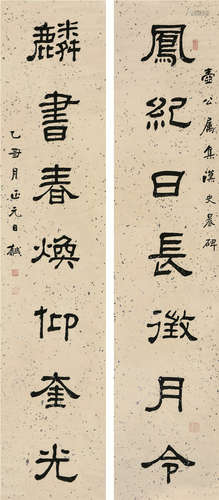 鳳紀日長徵月令
壺公屬集漢史晨碑
麟書春煥仰奎光
乙丑月正元日